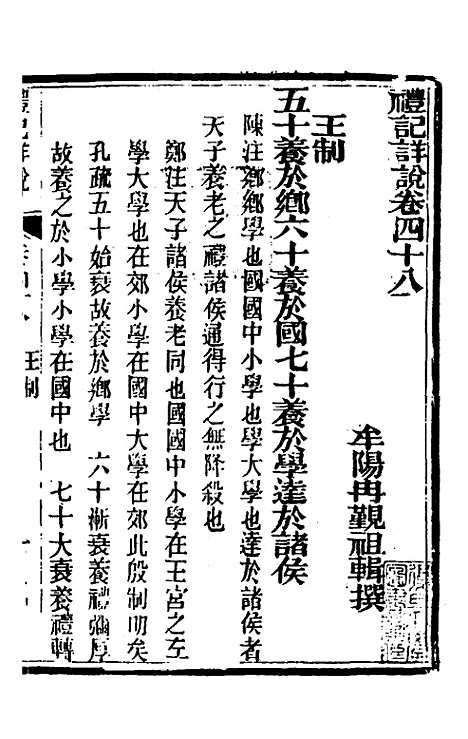 禮記詳說卷四十八
牟陽冉覲祖輯撰
王制
五十養於鄉六十養於國七十養於學達於諸侯
陳注鄉鄉學也國國中小學也學大學也達於諸侯者
天子養老之禮諸侯通得行之無降殺也
鄭注天子諸侯養老同也國國中小學在王宮之左
學大學也在郊小學在國中大學在郊此殷制明矣
孔疏五十始衰故養於鄉學 六十漸衰養禮彌厚
故養之於小學小學在國中也 七十大衰養禮轉
禮記詳說
王制